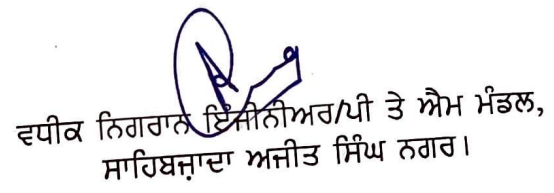 ਵਧੀਕ ਨਿਗਰਾਨ ਇੰਜੀਨੀਅਰ/ਪੀ ਤੇ ਐਮ ਮੰਡਲ,
ਸਾਹਿਬਜ਼ਾਦਾ ਅਜੀਤ ਸਿੰਘ ਨਗਰ।